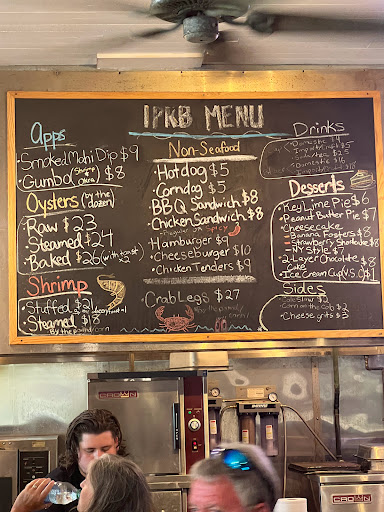 IPRB MENU
Apps
• Smoked Mahi Dip $9
• Gumbo $8
Oysters (by the dozen)
• Raw $23
• Steamed $24
• Baked $26
Shrimp
• Stuffed $21
• Steamed $18
By the pound
Non-Seafood
• Hotdog $5
• Corndog $5
• BBQ Sandwich $8
• Chicken Sandwich $8
SPICY
• Hamburger $9
• Cheeseburger $10
• Chicken Tenders $9
• Crab Legs $27
Drinks
• Domestic
Desserts
• Key Lime Pie $6
• Peanut Butter Pie $7
• Cheesecake
- Banana Fosters $8
- Strawberry Shortcake $8
- NY Style $7
• 2-Layer Chocolate Cake $8
• Ice Cream Cup (V.S.O) $1
Sides
• Cole Slaw $2
• Corn on the Cob $2
• Cheese grits $3
CROWN
CROWN